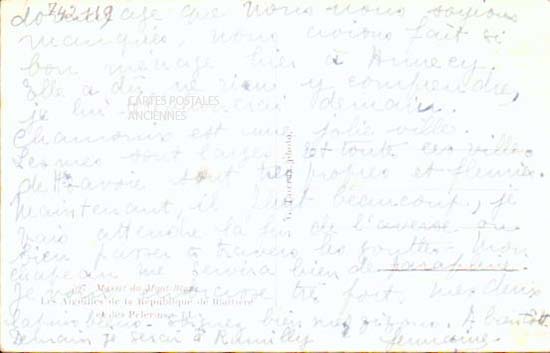 742119
dommage que nous nous soyons
manqués, nous avions fait si
bon ménage hier à Annecy.
Elle a dû ne rien y comprendre,
je lui demain.
CARTES POSTALES
ANCIENNES
Chamonix est une jolie ville.
Les rues sont larges et toutes ces villes
de Hte Savoie sont très propres et fleuries.
Maintenant, il pleut beaucoup, je
vais attendre la fin de l'averse ou
bien passer à travers les gouttes. Mon
chapeau me servira bien de parapluie.
Massif du Mont-Blanc
Je vous embrasse très fort, mes deux
Les Aiguilles de la République de Blaitière
et des Pèlerins
soignez bien A bientôt
Demain je serai à Rumilly